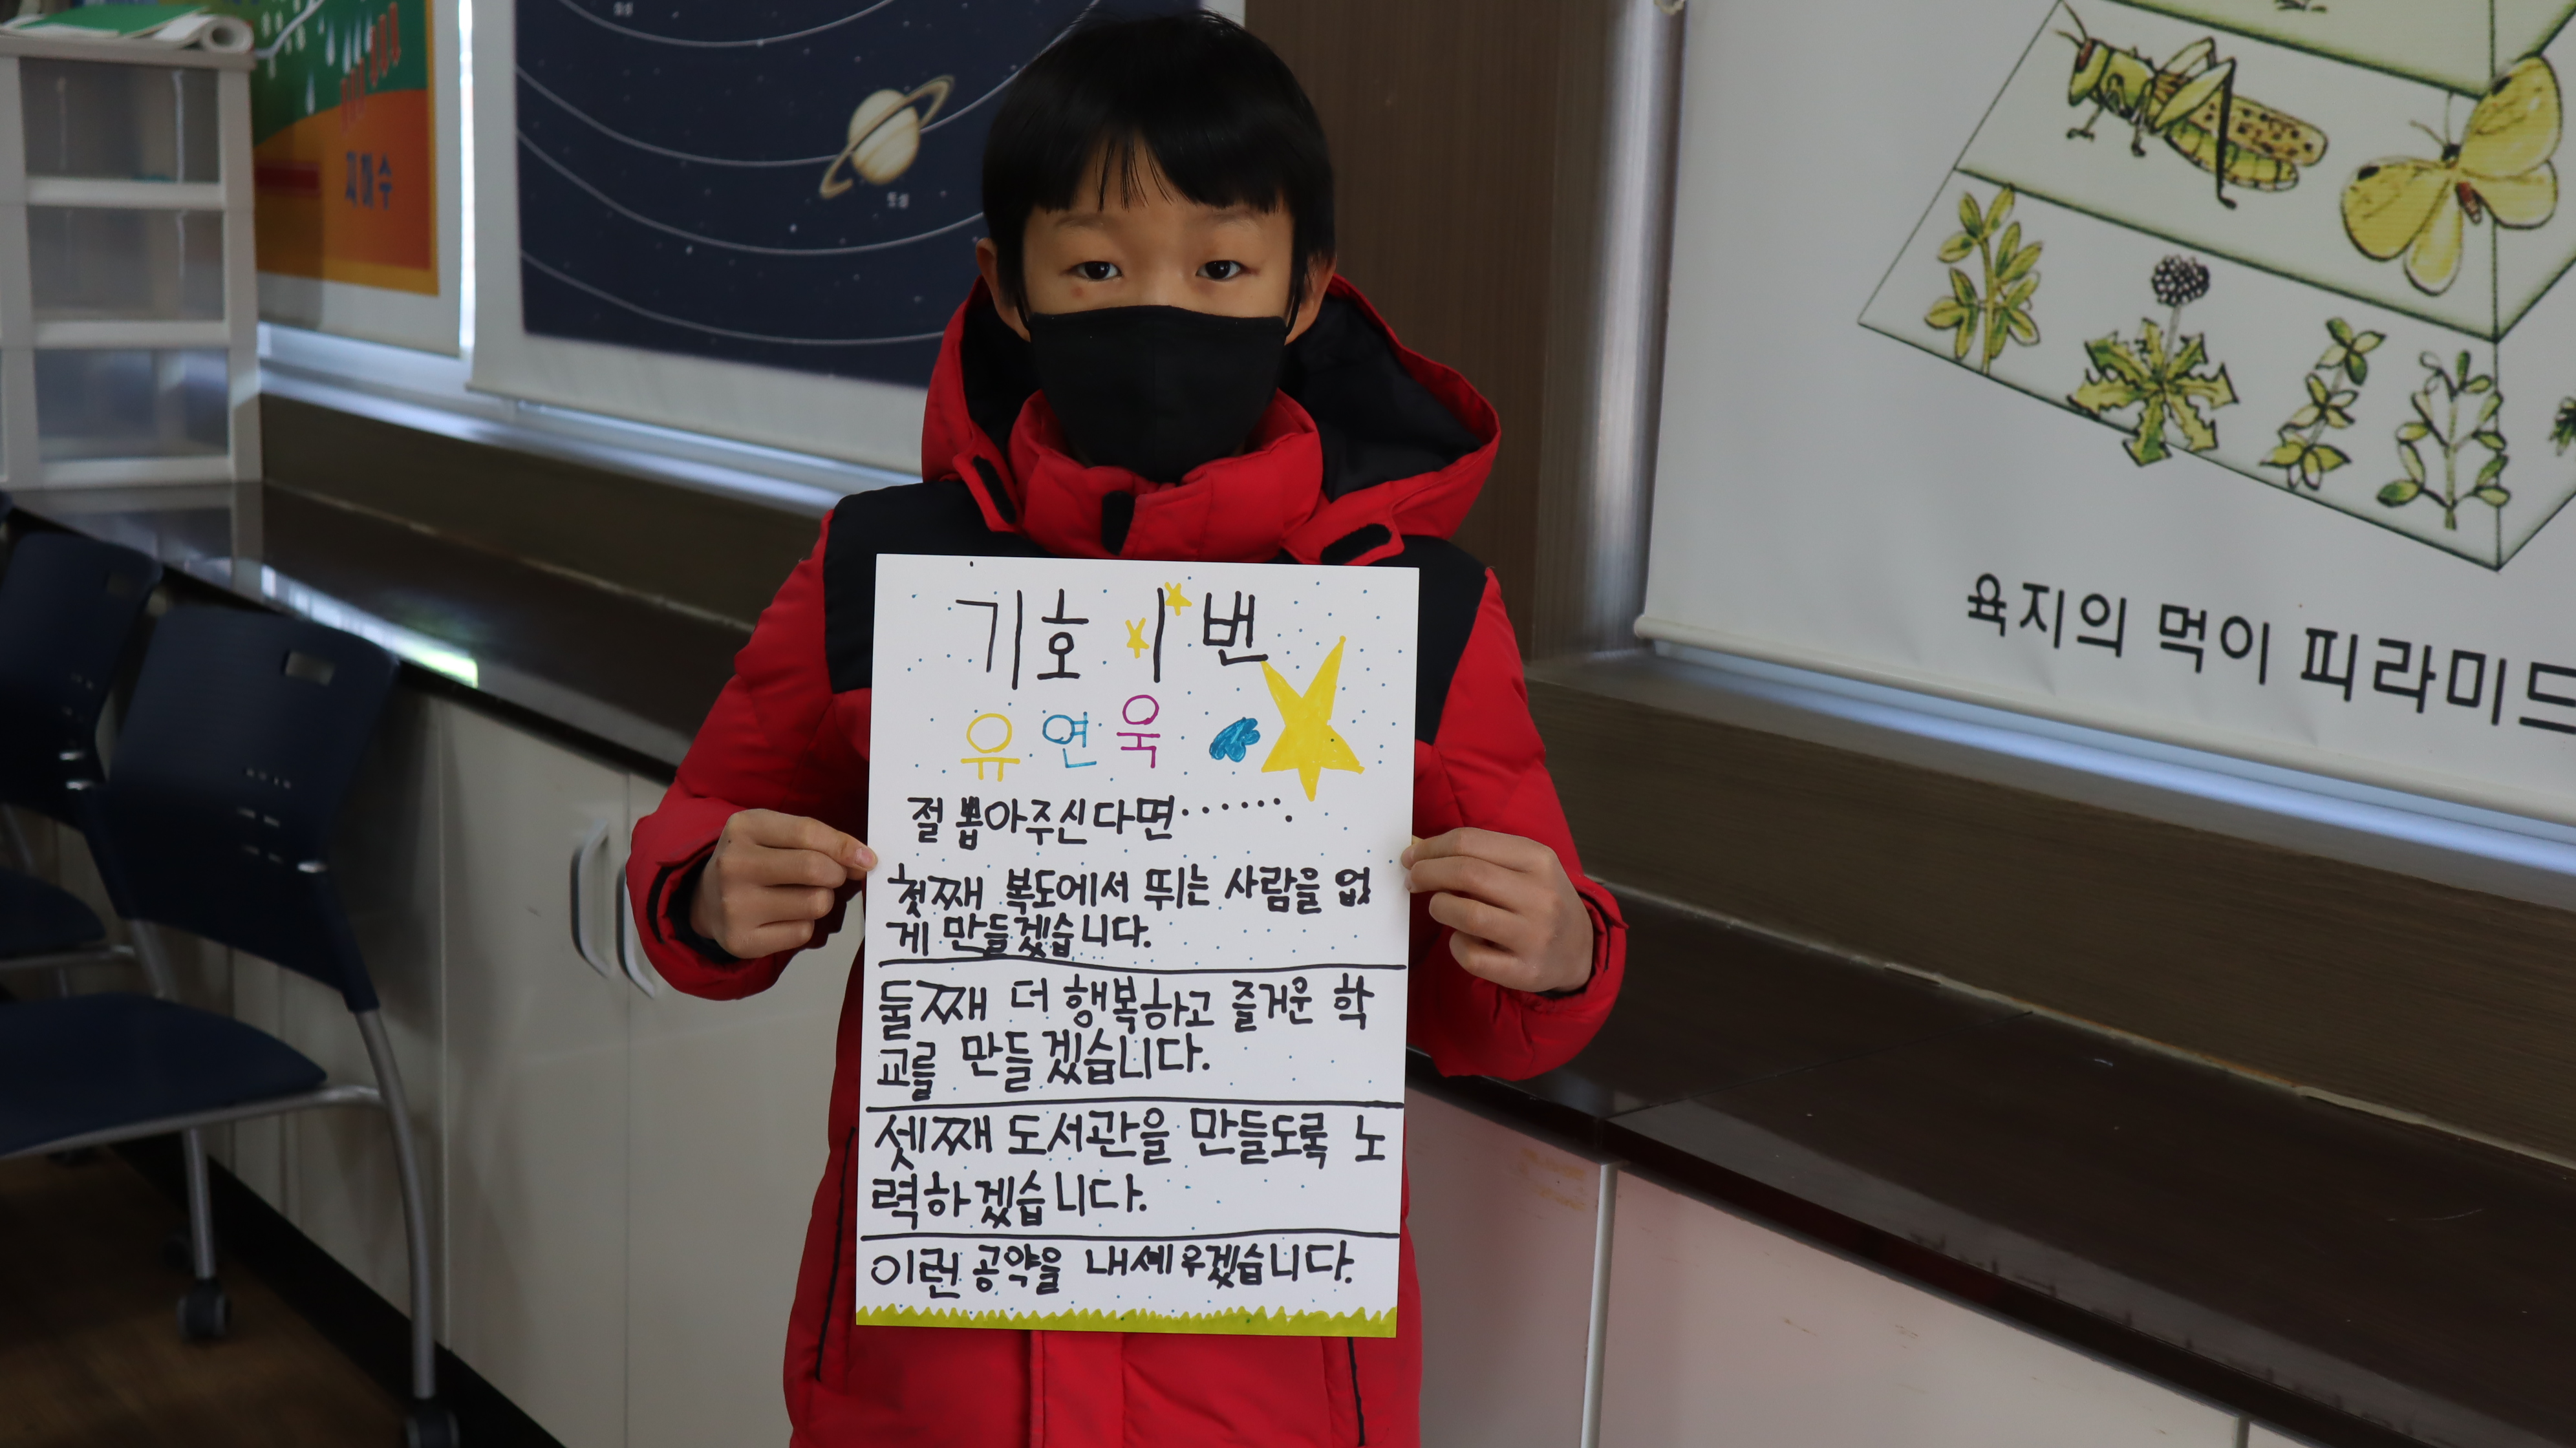 기호 1번
유연욱
절 뽑아주신다면.......
첫째 복도에서 뛰는 사람을 없
게 만들겠습니다.
둘째 더 행복하고 즐거운 학
교를 만들겠습니다.
셋째 도서관을 만들도록 노
력하겠습니다.
이런 공약을 내세우겠습니다.
육지의 먹이 피라미드
지하수
토성